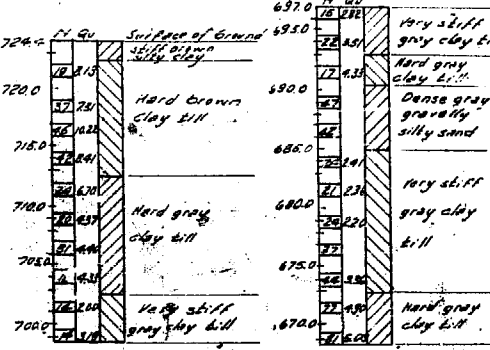 N Qu Surface of Ground
724.4
stiff brown
silty clay
19 2.13
720.0
37 7.51
Hard brown
clay till
46 10.22
715.0
42 2.41
24 6.70
710.0
20 4.57
Hard gray
clay till
31 4.46
705.0
4.35
Very stiff
gray clay till
16 2.60
700.0
14 3.19
N Qu
697.0
16 2.82
Very stiff
gray clay ti
695.0
22 3.51
Hard gray
clay till
17 4.35
690.0
47
Dense gray
gravelly
silty sand
42
685.0
2.41
21 2.36
Very stiff
gray clay
till
680.0
24 2.20
27
675.0
44 3.96
Hard gray
clay till
77 4.90
670.0
81 6.05